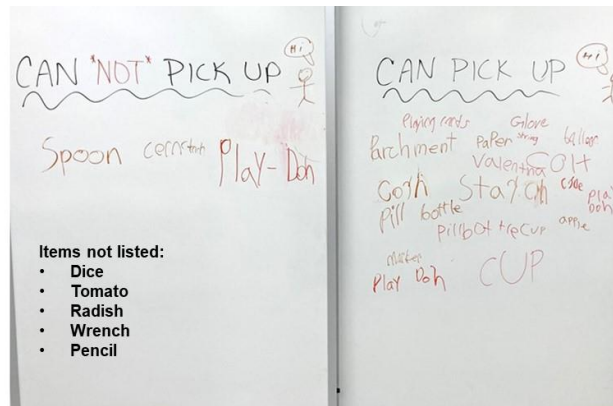 Hi
CAN "NOT" PICK UP
Spoon cernstrh Play-Doh
Items not listed:
• Dice
• Tomato
• Radish
• Wrench
• Pencil
Hi
CAN PICK UP
Playing cards Glove
Parchment Paper string balloon
Valentina COlt
Corn Starch
Pla
Doh
pill bottle apple
pillbottlecup
marker
Play Doh CUP